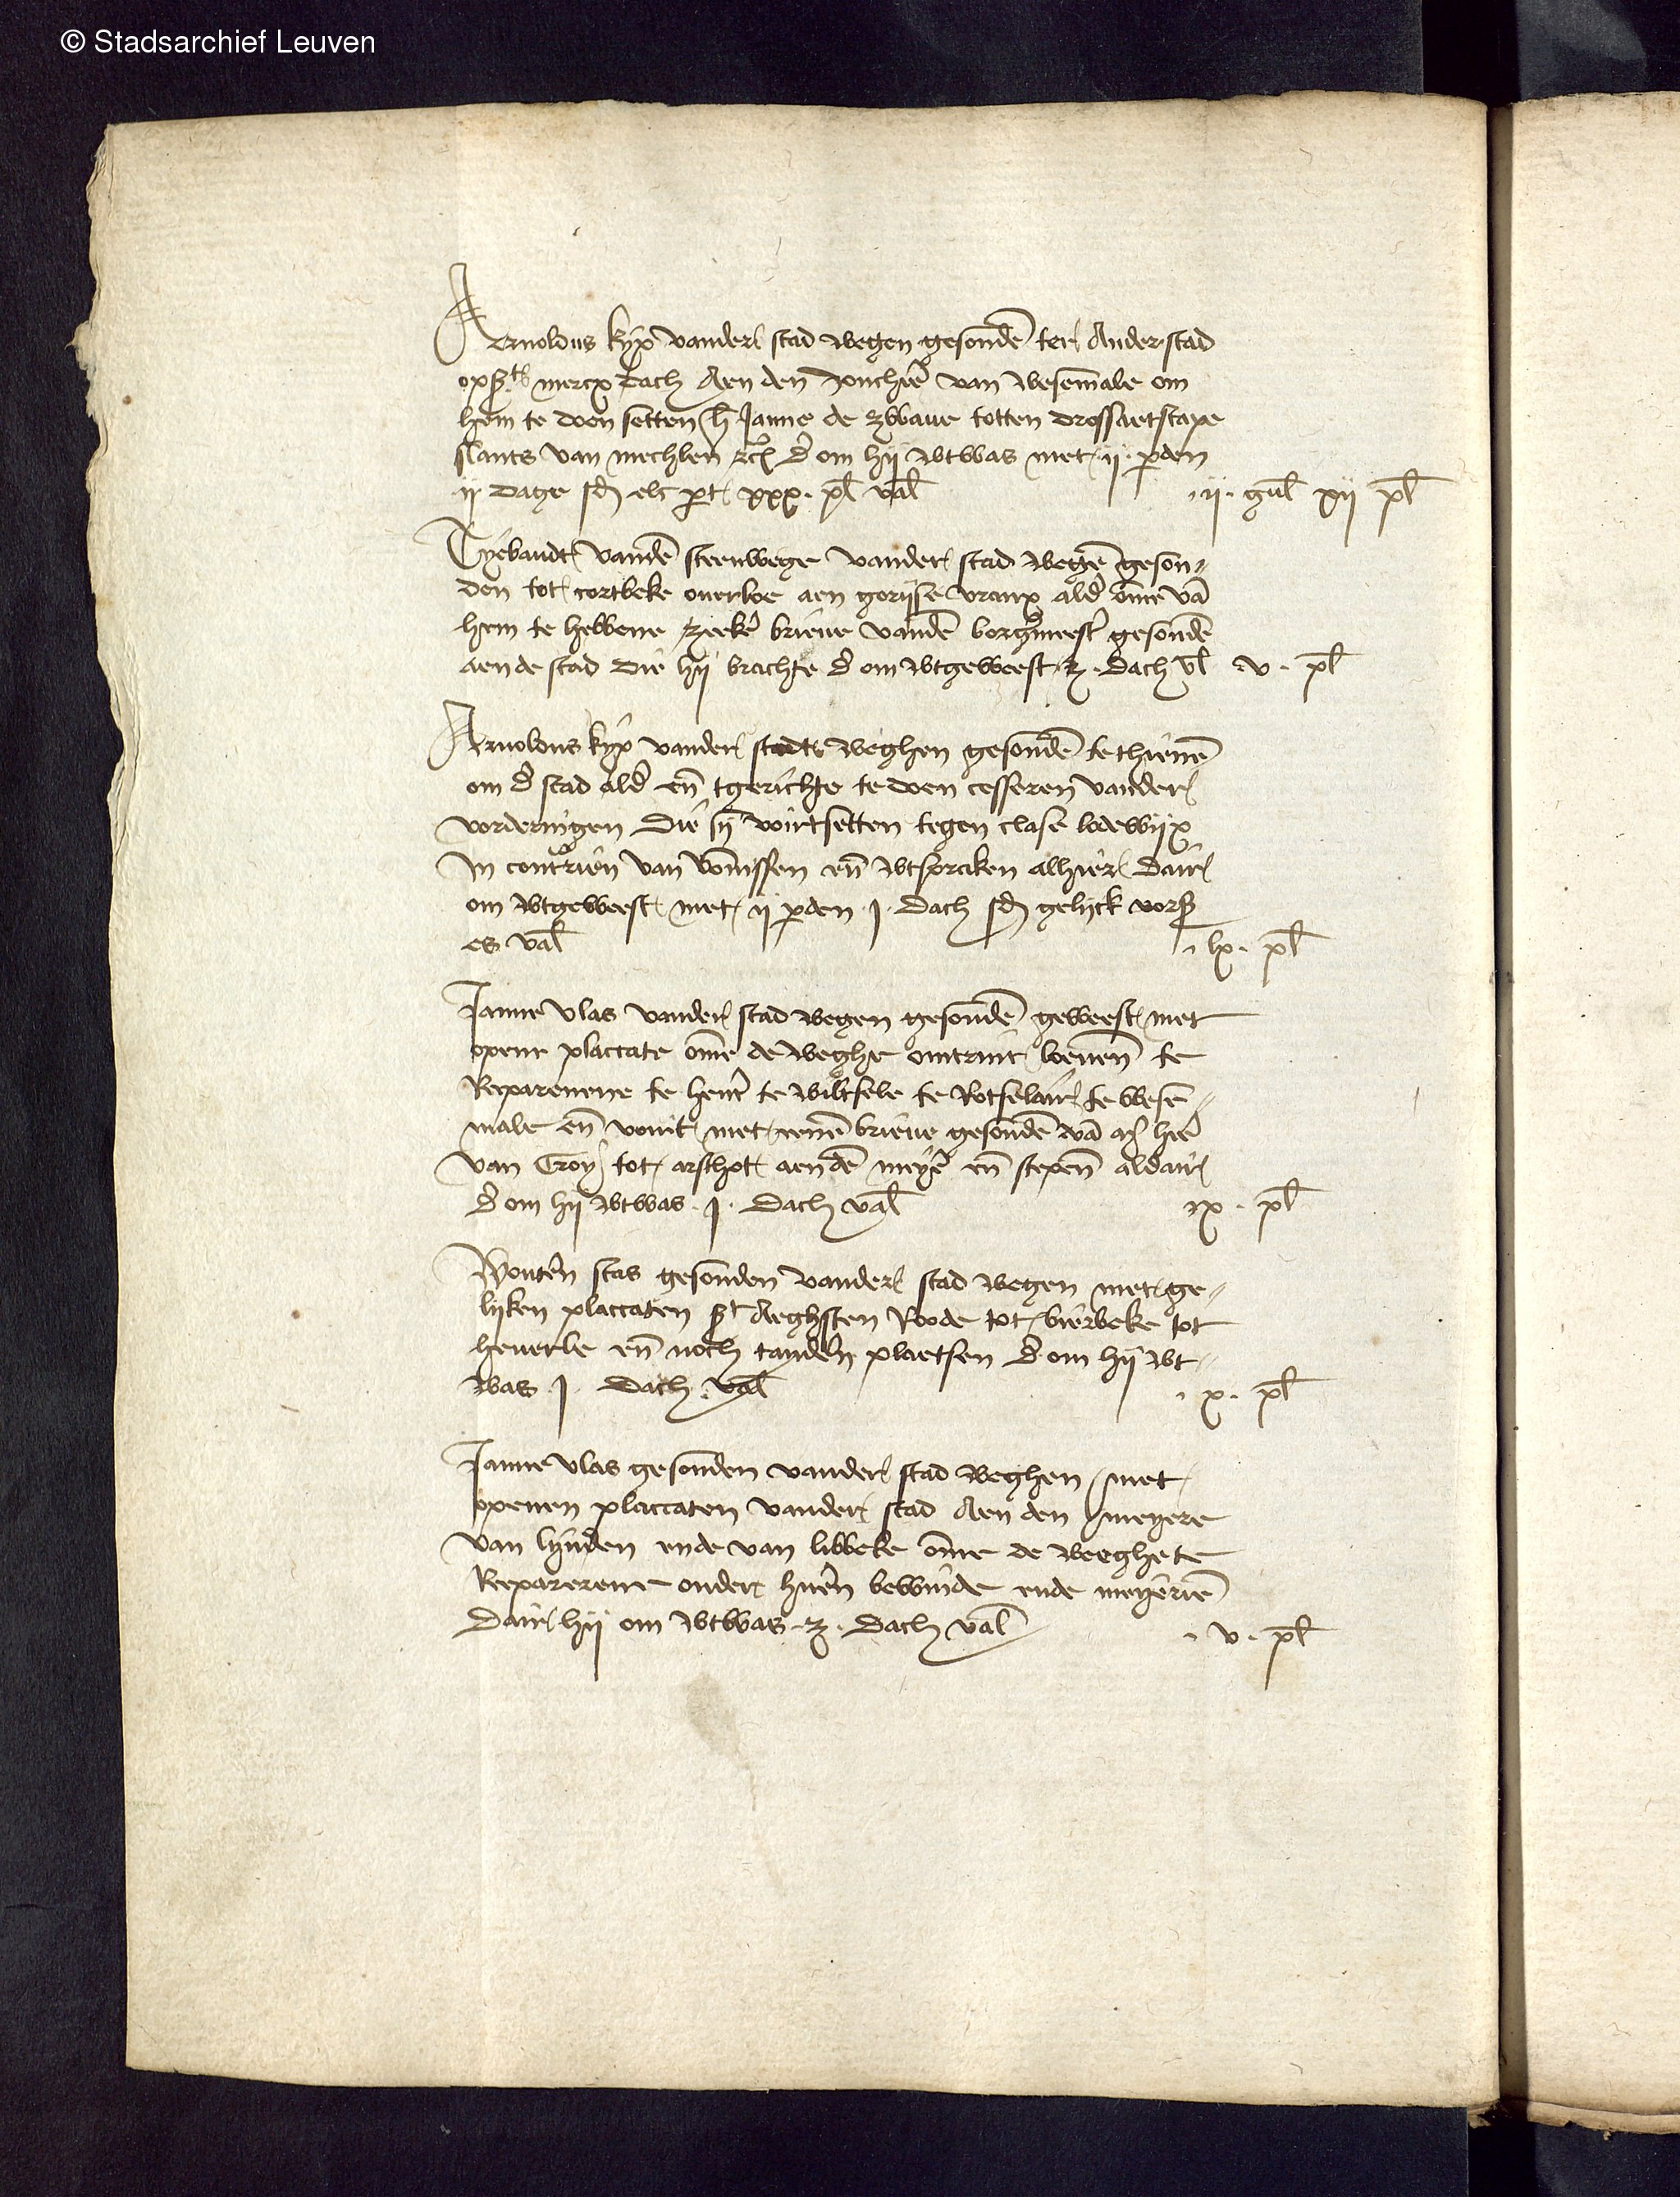 © Stadsarchief Leuven
Arnoldus kijx vander stad wegen gesonde ter Anderstad
op ste mercx dach Aen den joncheer van wesemale om
hem te doen setten h Janne de zwaue totten drossaetscape
slants van mechlen etc dair om hij wtwas met ij perden
ij dage sdaechs elc pert xxx pl val ij gul xij pl
Tybaudt vanden steenwege vander stad wegen geson
den tot cortbeke ouerloe aen gorijse vranx ald omme van
hem te hebbene zeker brieue vanden borghmeester gesonden
aen de stad die hij brachte dair om wtgeweest ½ dach val v pl
Arnoldus kijx vander stadt weghen gesonden te thienen
om de stad ald en tgerichte te doen cesseren vander
vorderingen die sij voirtsetten tegen clase lodewijx
In contrarien van vonnissen en wtspraken alhier dair
om wtgeweest met ij perden j dach sdaechs gelijck vors
es val lx pl
Janne vlas vander stad wegen gesonden geweest met
openr placcate omme de weghe omtrint loeuen te
Reparerene te hent te wiltsele te Rotselair te wese
male en voirt met eenen brieue gesonden van mijn heer
van Croy tot arschot aen den meyer en scepen aldair
dair om hij wtwas j dach val x pl
Wouteren stas gesonden vander stad wegen met ge
lijken placcaten st Aeghten Rode tot bierbeke tot
heuerle en noch tandere plaetsen dair om hij wt
was j dach val x pl
Janne vlas gesonden vander stad weghen met
openen placcaten vander stad Aen den meyere
van lynden ende van lubbeke omme de weeghe te
Reparerene onder huere bewinde ende meyerien
dair hij om wtwas ½ dach val v pl